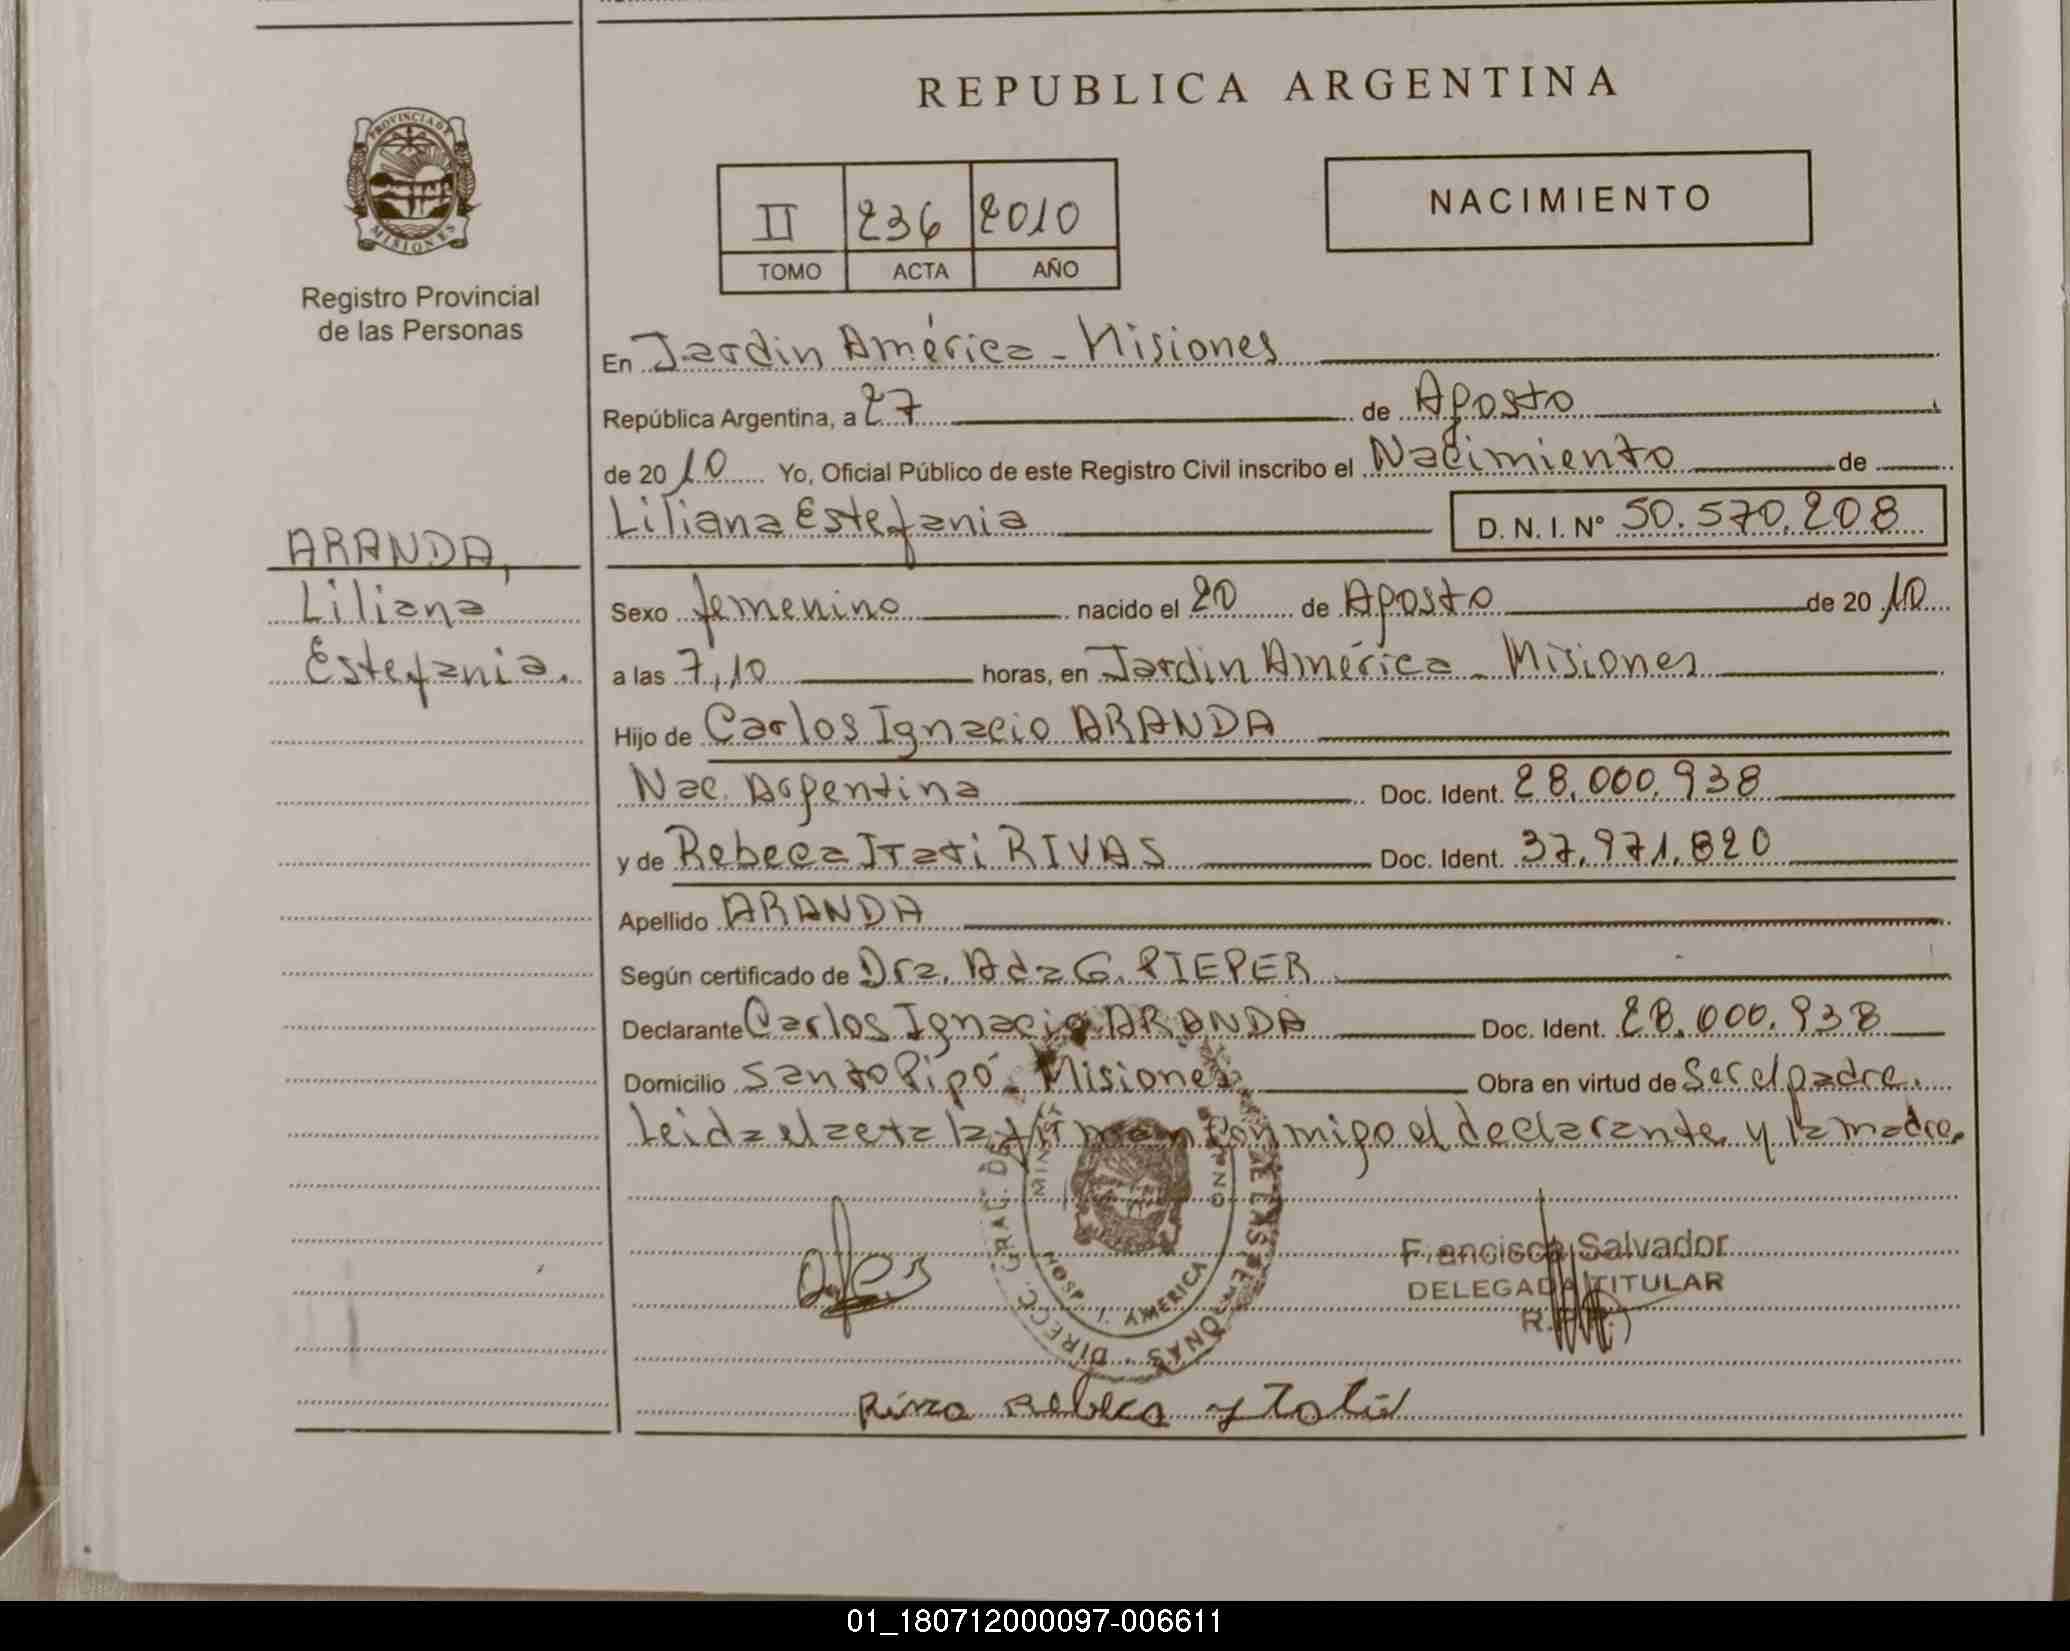 REPUBLICA ARGENTINA
PROVINCIA DE MISIONES
Registro Provincial
de las Personas
II 236 2010
TOMO ACTA AÑO
NACIMIENTO
En Jardin América - Misiones
República Argentina, a 27 de Agosto
de 2010 Yo, Oficial Público de este Registro Civil inscribo el Nacimiento de
Liliana Estefania D. N. I. N° 50.570.208
ARANDA,
Liliana
Estefania.
Sexo femenino nacido el 20 de Agosto de 2010
a las 7,10 horas, en Jardin América - Misiones
Hijo de Carlos Ignacio ARANDA
Nac. Argentina Doc. Ident. 28.000.938
y de Rebeca Itati RIVAS Doc. Ident. 37.971.820
Apellido ARANDA
Según certificado de Dra. Ada G. PIEPER
Declarante Carlos Ignacio ARANDA Doc. Ident. 28.000.938
Domicilio Santo Pipó - Misiones Obra en virtud de Ser el padre.
Leida el acta la firman conmigo el declarante y la madre.
DIRECC. GRAL. DE LAS PERSONAS
HOSP. J. AMERICA
Francisca Salvador
DELEGADA TITULAR
Rebeca
01_180712000097-006611